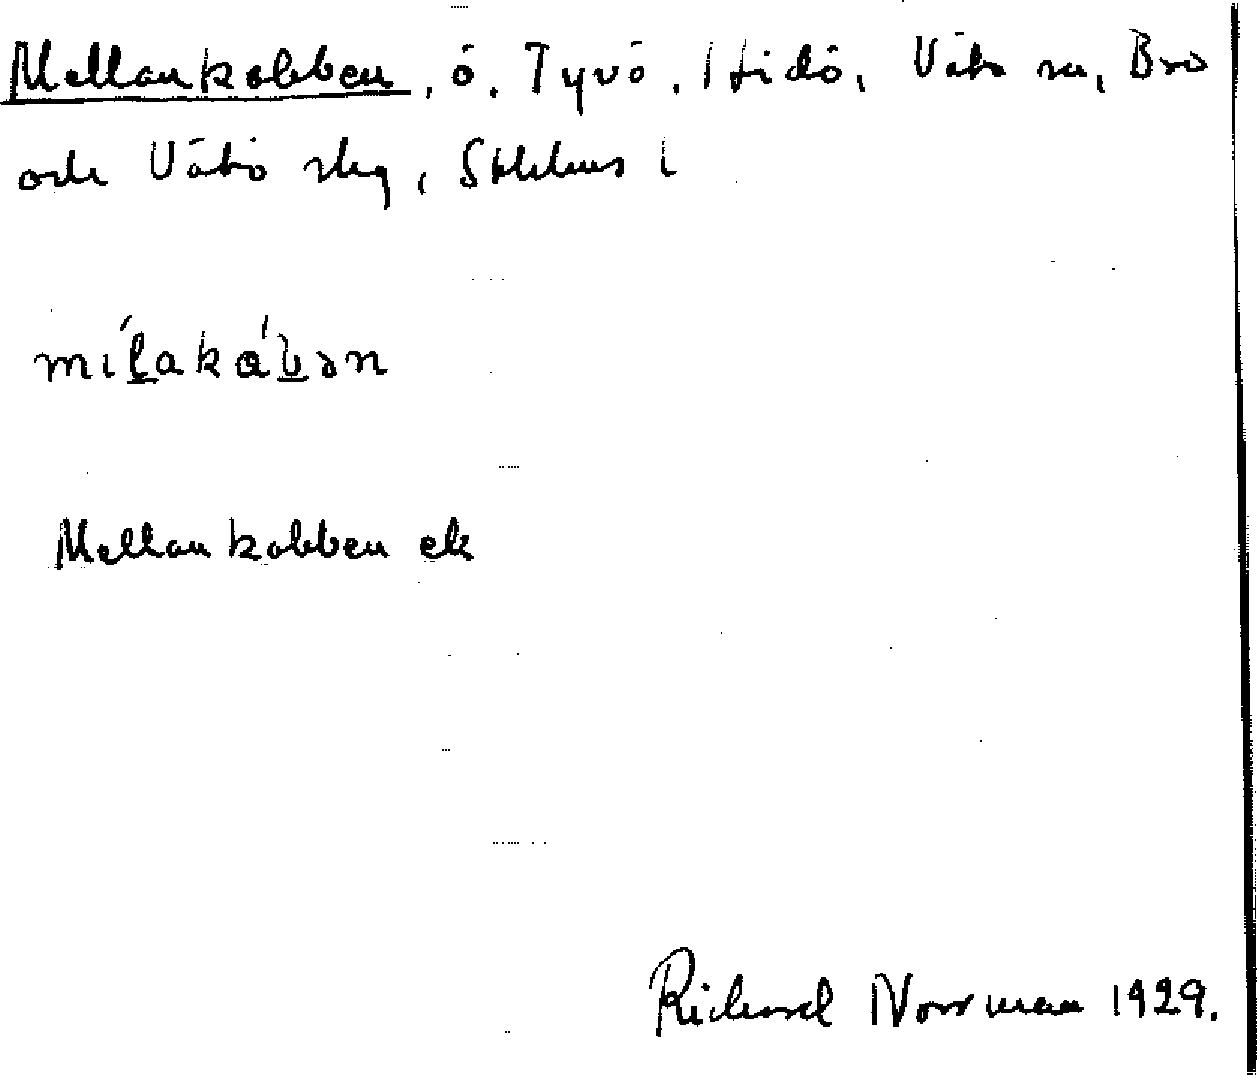 Mellankobben, ö, Tyvö, Hidö, Vätö sn, Bro
och Vätö slg, Sthlms l
mílakábən
Mellankobben ek
Richard Norrman 1929.